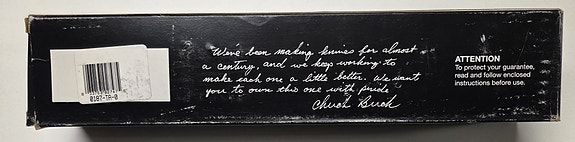 0187-TR-0
We've been making knives for almost
a century, and we keep working to
make each one a little better. We want
you to own this one with pride
Chuck Buck
ATTENTION
To protect your guarantee,
read and follow enclosed
instructions before use.